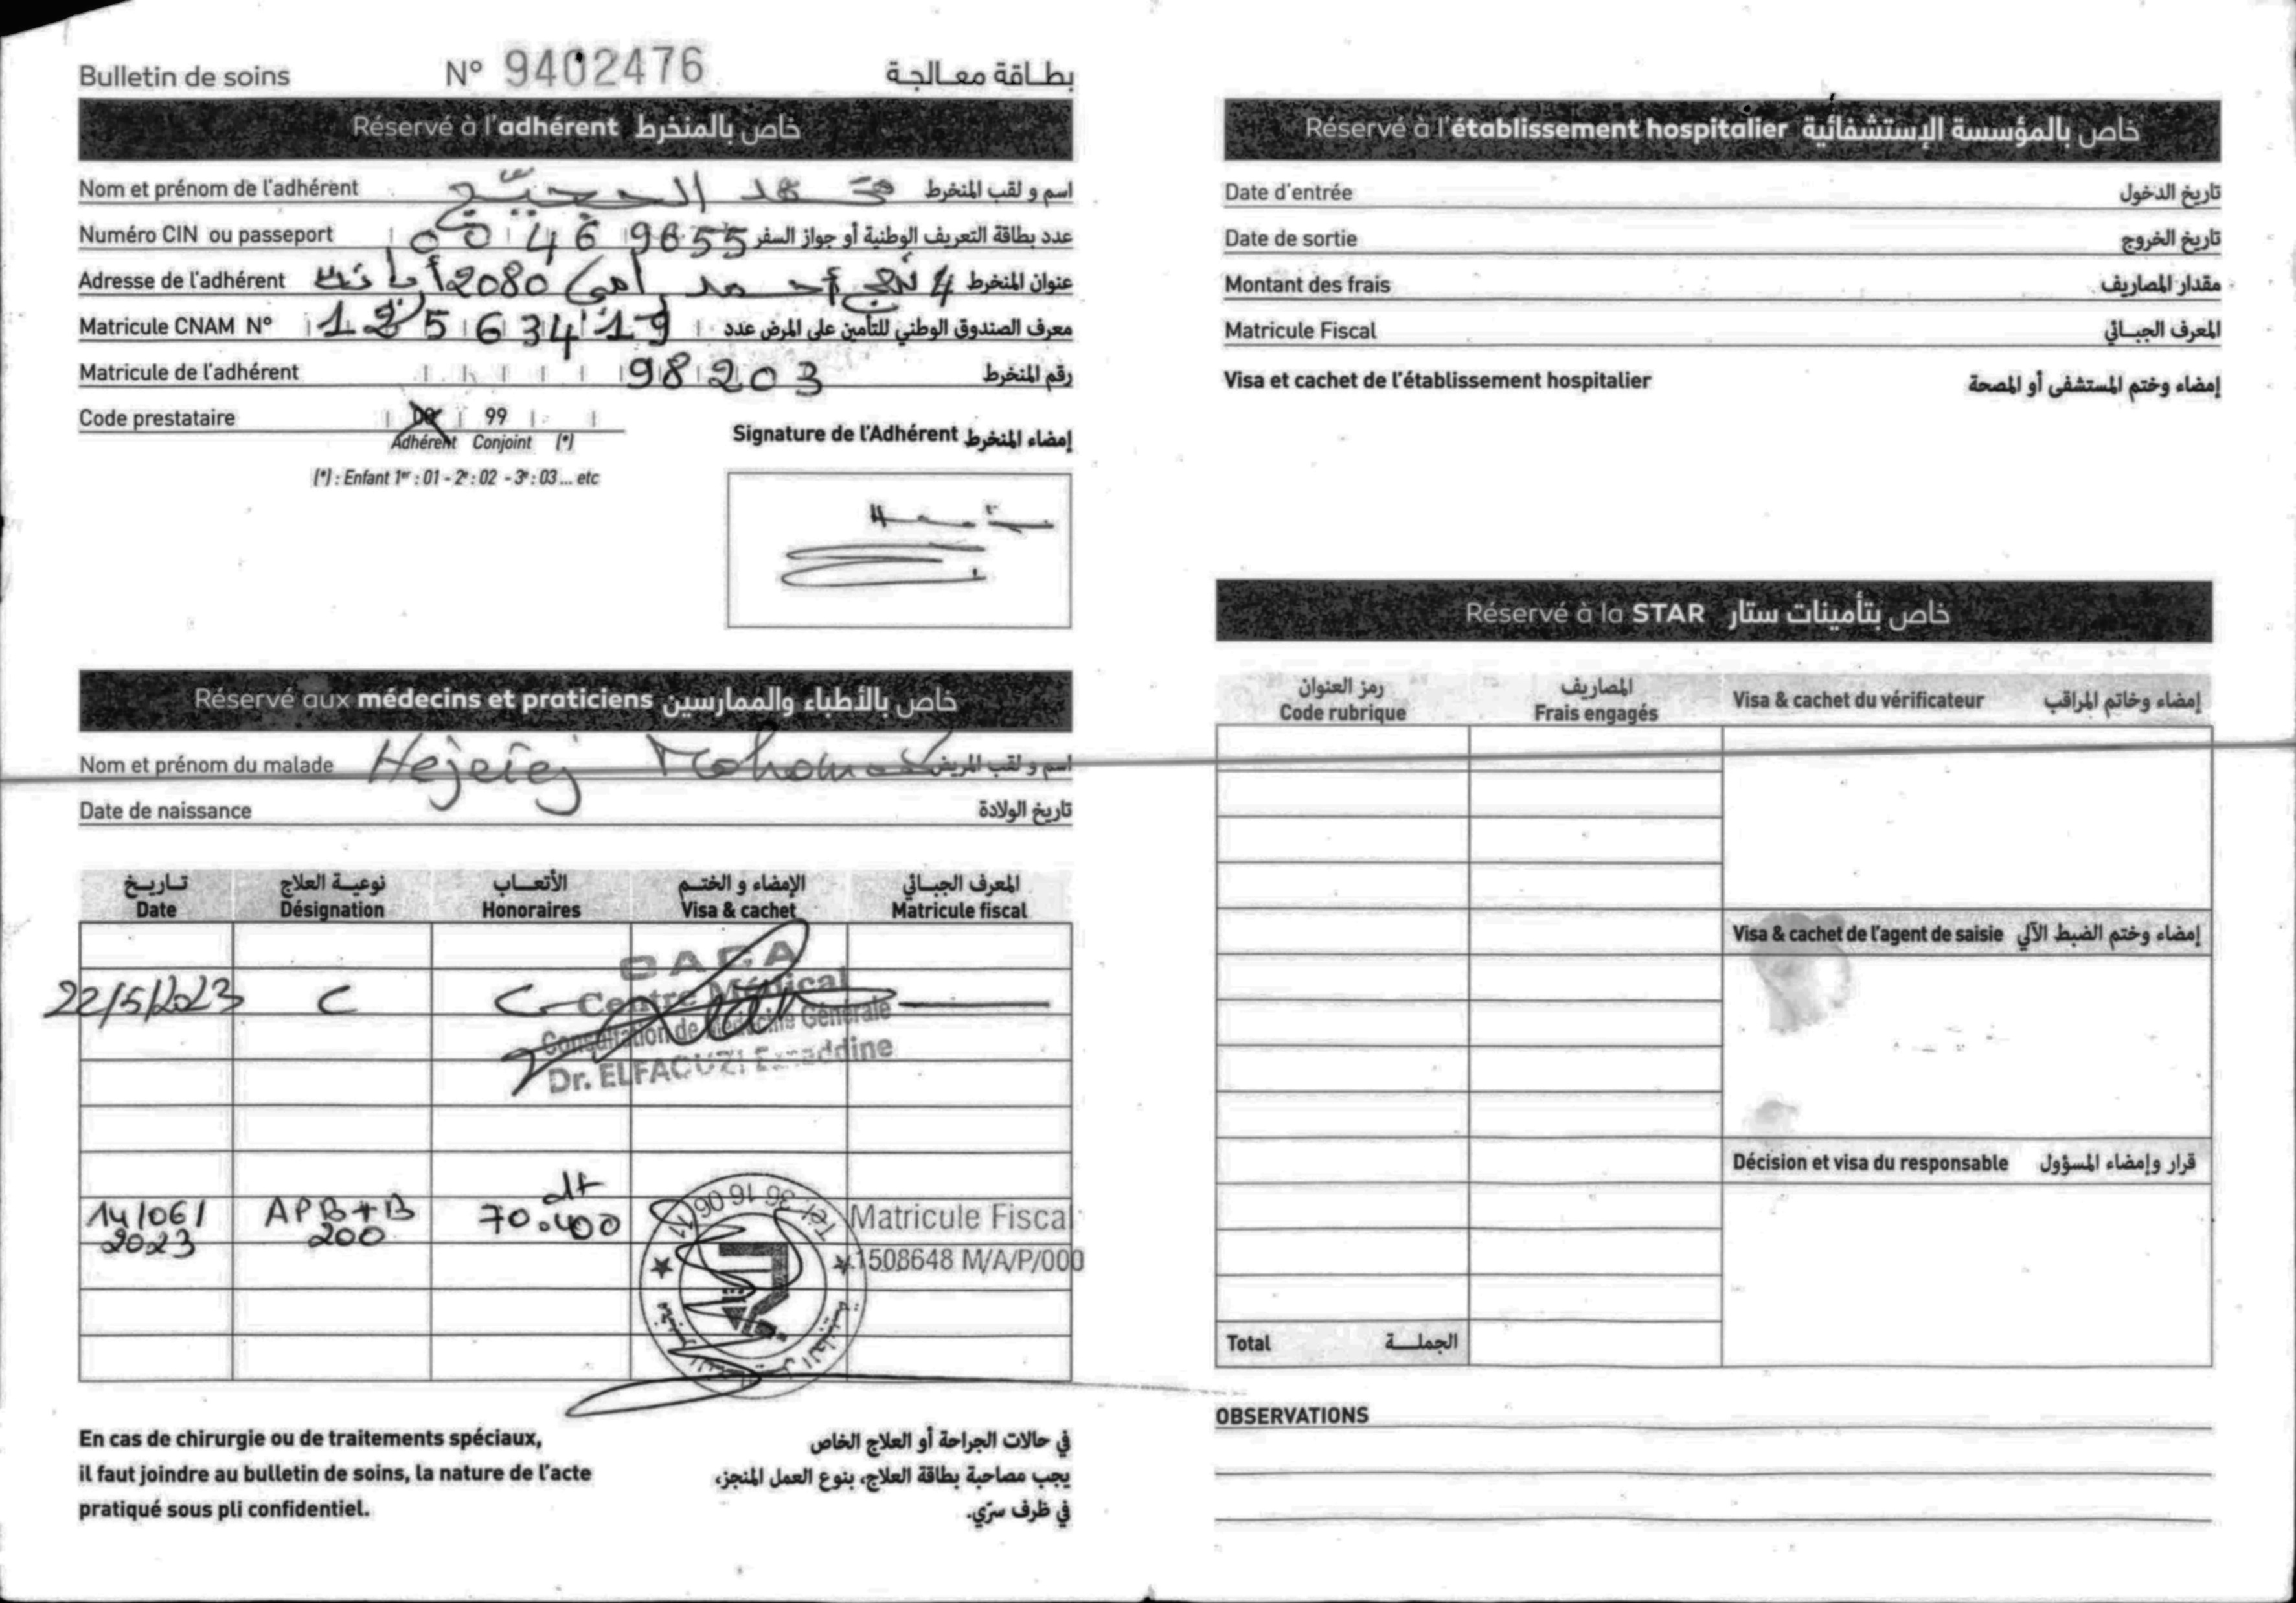 Bulletin de soins N° 9402476 بطاقة معالجة
Réservé à l'adhérent خاص بالمنخرط
Nom et prénom de l'adhérent محمد الحجيّج اسم و لقب المنخرط
Numéro CIN ou passeport 00469655 عدد بطاقة التعريف الوطنية أو جواز السفر
Adresse de l'adhérent 4 نهج أحمد أمين 2080 أريانة عنوان المنخرط
Matricule CNAM N° 1256341 19 معرف الصندوق الوطني للتأمين على المرض عدد
Matricule de l'adhérent 98203 رقم المنخرط
Code prestataire 00 99
Adhérent Conjoint (*)
(*) : Enfant 1er : 01 - 2e : 02 - 3e : 03 ... etc
Signature de l'Adhérent إمضاء المنخرط
Réservé aux médecins et praticiens خاص بالأطباء والممارسين
Nom et prénom du malade Hejeiej Mohamed اسم و لقب المريض
Date de naissance تاريخ الولادة
تـاريـخ نوعيـة العلاج الأتعـاب الإمضاء و الختـم المعرف الجبـائي
Date Désignation Honoraires Visa & cachet Matricule fiscal
22/5/2023 C C
Centre Médical
Consultation de Médecine Générale
Dr. ELFAOUZI Ezzeddine
14/06/ APB+B 70.400 dt Matricule Fiscal
2023 200 1508648 M/A/P/000
En cas de chirurgie ou de traitements spéciaux,
il faut joindre au bulletin de soins, la nature de l'acte
pratiqué sous pli confidentiel.
في حالات الجراحة أو العلاج الخاص
يجب مصاحبة بطاقة العلاج، بنوع العمل المنجز،
في ظرف سرّي.
Réservé à l'établissement hospitalier خاص بالمؤسسة الإستشفائية
Date d'entrée تاريخ الدخول
Date de sortie تاريخ الخروج
Montant des frais مقدار المصاريف
Matricule Fiscal المعرف الجبـائي
Visa et cachet de l'établissement hospitalier إمضاء وختم المستشفى أو المصحة
Réservé à la STAR خاص بتأمينات ستار
رمز العنوان المصاريف
Code rubrique Frais engagés Visa & cachet du vérificateur إمضاء وخاتم المراقب
Visa & cachet de l'agent de saisie إمضاء وختم الضبط الآلي
Décision et visa du responsable قرار وإمضاء المسؤول
Total الجملـة
OBSERVATIONS